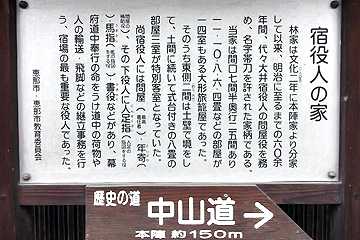 宿役人の家
林家は文化二年に本陣家より分家
して以来、明治に至るまでの六〇余
年間、代々大井宿役人の問屋役を務
め、名字帯刀を許された家柄である。
当家は間口七間半奥行一五間あり
一一・一〇・八・六・四畳などの部屋が
一四室もある大形旅籠屋であった。
そのうち東側二間は土壁で境をし
て、土間に続いて式台付きの八畳の
部屋三室が特別客室となっていた。
尚宿役人には問屋
年寄
その下役人に人足指
馬指
書役などがあり、幕
府道中奉行の命をうけ道中の荷物や
人の輸送・飛脚などの継立事務を行
う、宿場の最も重要な役人であった。
恵那市・恵那市教育委員会
歴史の道
中山道→
本陣 約150m